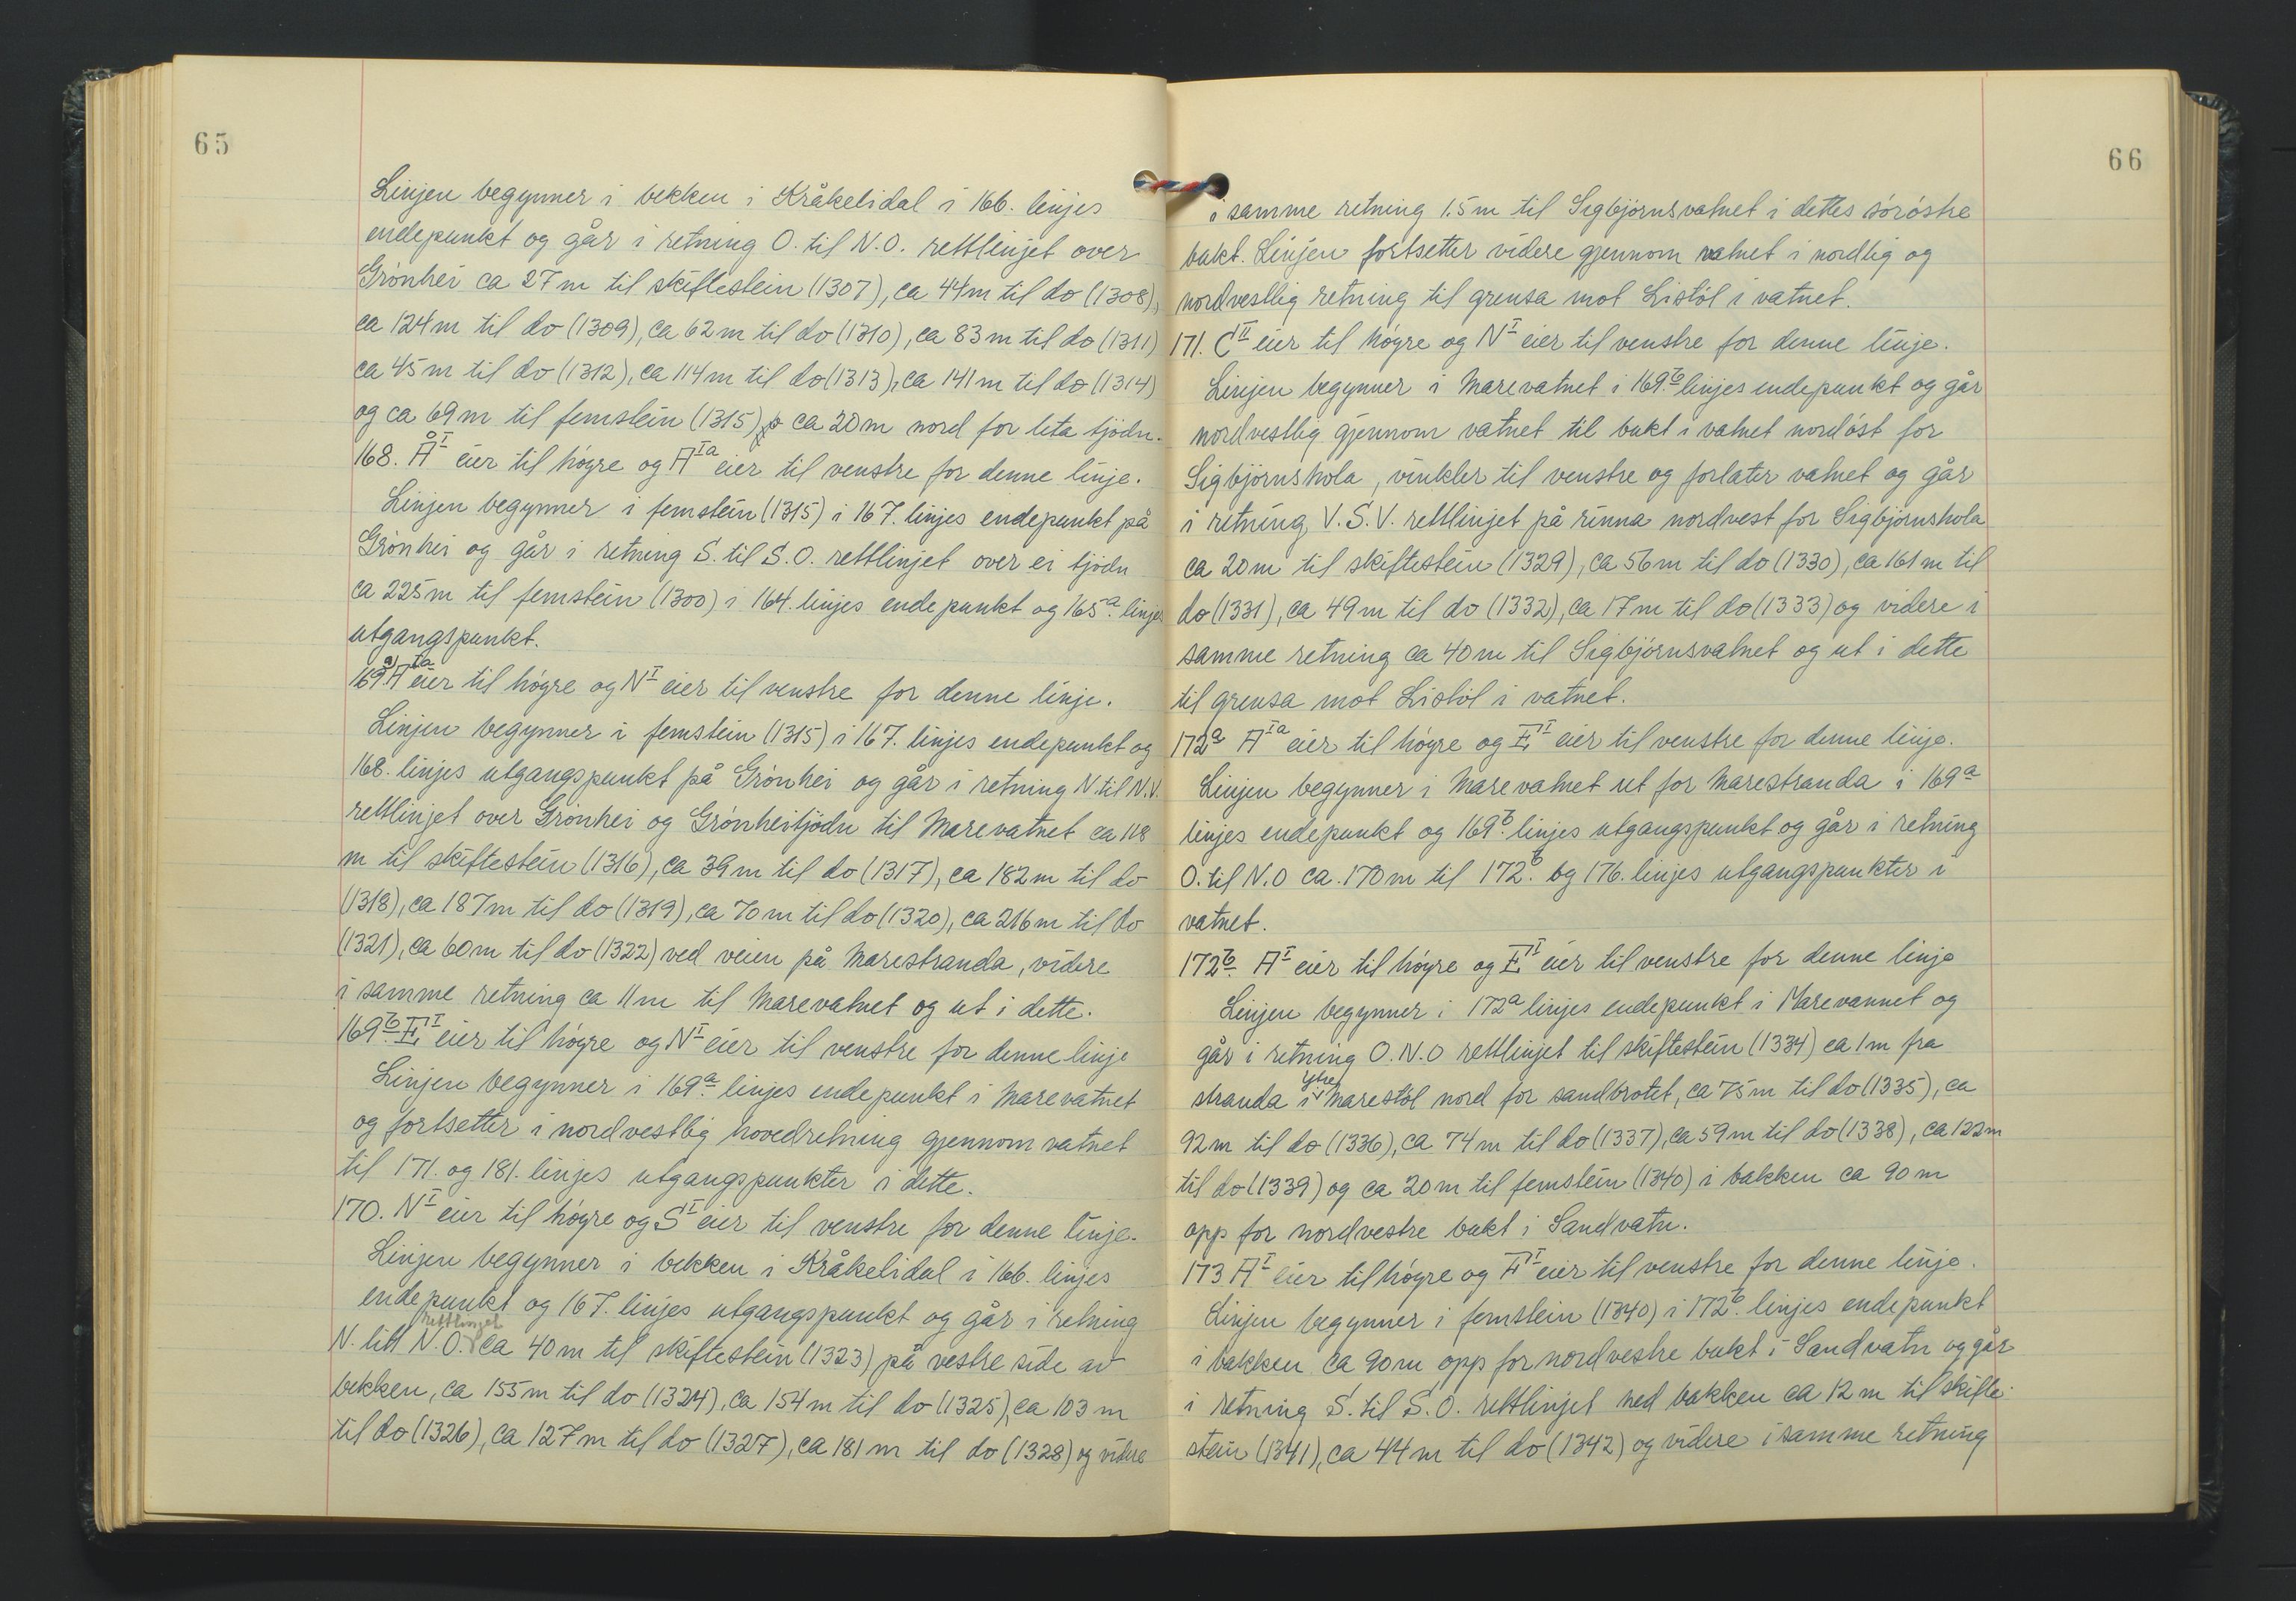 65
Linjen begynner i bekken i Kråkelidal i 166. linjes
endepunkt og går i retning O. til N.O. rettlinjet over
Grönhei ca 27 m til skiftestein (1307), ca 44 m til do (1308),
ca 124 m til do (1309), ca 62 m til do (1310), ca 83 m til do (1311)
ca 45 m til do (1312), ca 114 m til do (1313), ca 141 m til do (1314)
og ca 69 m til femstein (1315) ca 20 m nord for lita tjödn.
168. Å I eier til högre og A Ia eier til venstre for denne linje.
Linjen begynner i femstein (1315) i 167. linjes endepunkt på
Grönhei og går i retning S. til S.O. rettlinjet over ei tjödn
ca 225 m til femstein (1300) i 164. linjes endepunkt og 165a linjes
utgangspunkt.
169a) A Ia eier til högre og N I eier til venstre for denne linje.
Linjen begynner i femstein (1315) i 167. linjes endepunkt og
168. linjes utgangspunkt på Grönhei og går i retning N. til N.V.
rettlinjet over Grönhei og Grönheitjödn til Marevatnet ca 118
m til skiftestein (1316), ca 39 m til do (1317), ca 182 m til do
(1318), ca 187 m til do (1319), ca 70 m til do (1320), ca 216 m til do
(1321), ca 60 m til do (1322) ved veien på Marestranda, videre
i samme retning ca 11 m til Marevatnet og ut i dette.
169b. E I eier til högre og N I eier til venstre for denne linje
Linjen begynner i 169a. linjes endepunkt i Marevatnet
og fortsetter i nordvestlig hovedretning gjennom vatnet
til 171. og 181. linjes utgangspunkter i dette.
170. N I eier til högre og S I eier til venstre for denne linje.
Linjen begynner i bekken i Kråkelidal i 166. linjes
endepunkt og 167. linjes utgangspunkt og går i retning
rettlinjet
N. till N.O. ca 40 m til skiftestein (1323) på vestre side av
bekken, ca 155 m til do (1324), ca 154 m til do (1325), ca 103 m
til do (1326), ca 127 m til do (1327), ca 181 m til do (1328) og videre
66
i samme retning 1.5 m til Sigbjörnsvatnet i dettes söröstre
bukt. Linjen fortsetter videre gjennom vatnet i nordlig og
nordvestlig retning til grensa mot Listöl i vatnet.
171. C II eier til högre og N I eier til venstre for denne linje.
Linjen begynner i Marevatnet i 169.b linjes endepunkt og går
nordvestlig gjennom vatnet til bukt i vatnet nordöst for
Sigbjörnshola, vinkler til venstre og forlater vatnet og går
i retning V.S.V. rettlinjet på rinna nordvest for Sigbjörnshola
ca 20 m til skiftestein (1329), ca 56 m til do (1330), ca 161 m til
do (1331), ca 49 m til do (1332), ca 17 m til do (1333) og videre i
samme retning ca 40 m til Sigbjörnsvatnet og ut i dette
til grensa mot Listöl i vatnet.
172a A Ia eier til högre og E I eier til venstre for denne linje.
Linjen begynner i Marevatnet ut for Marestranda i 169a
linjes endepunkt og 169b. linjes utgangspunkt og går i retning
O. til N.O ca. 170 m til 172b. og 176. linjes utgangspunkter i
vatnet.
172b. A I eier til högre og E I eier til venstre for denne linje
Linjen begynner i 172a linjes endepunkt i Marevannet og
går i retning O.N.O rettlinjet til skiftestein (1334) ca 1 m fra
Ytre
stranda i Marestöl nord for sandbrotet, ca 75 m til do (1335), ca
92 m til do (1336), ca 74 m til do (1337), ca 59 m til do (1338), ca 122 m
til do (1339) og ca 20 m til femstein (1340) i bakken ca 90 m
opp for nordvestre bukt i Sandvatn.
173 A I eier til högre og F I eier til venstre for denne linje.
Linjen begynner i femstein (1340) i 172b. linjes endepunkt
i bakken ca 90 m opp for nordvestre bukt i Sandvatn og går
i retning S. til S.O. rettlinjet ned bakken ca 12 m til skifte-
stein (1341), ca 44 m til do (1342) og videre i samme retning